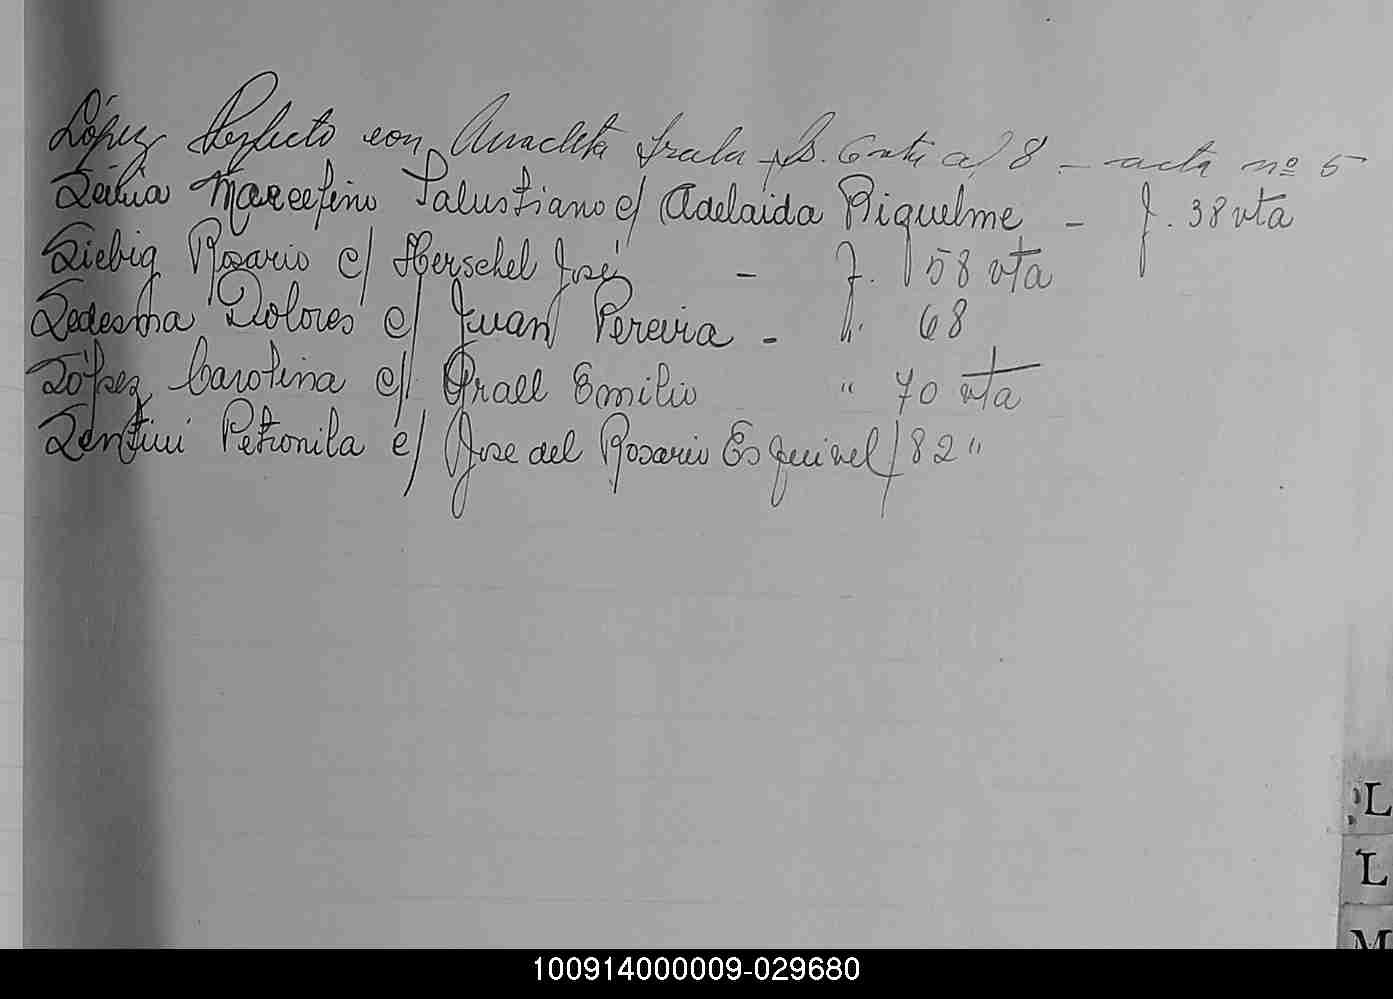 López Perfecto con Anacleta Irala - acta nº 5
Marcelino Salustiano c/ Adelaida Riquelme - f. 38 vta
Liebig Rosario c/ Herschel José - f. 58 vta
Ledesma Dolores c/ Juan Pereira - " 68
López Carolina c/ Grall Emilio " 70 vta
Lentini Petronila c/ Jose del Rosario Esquivel / 82 "
L
L
M
100914000009-029680